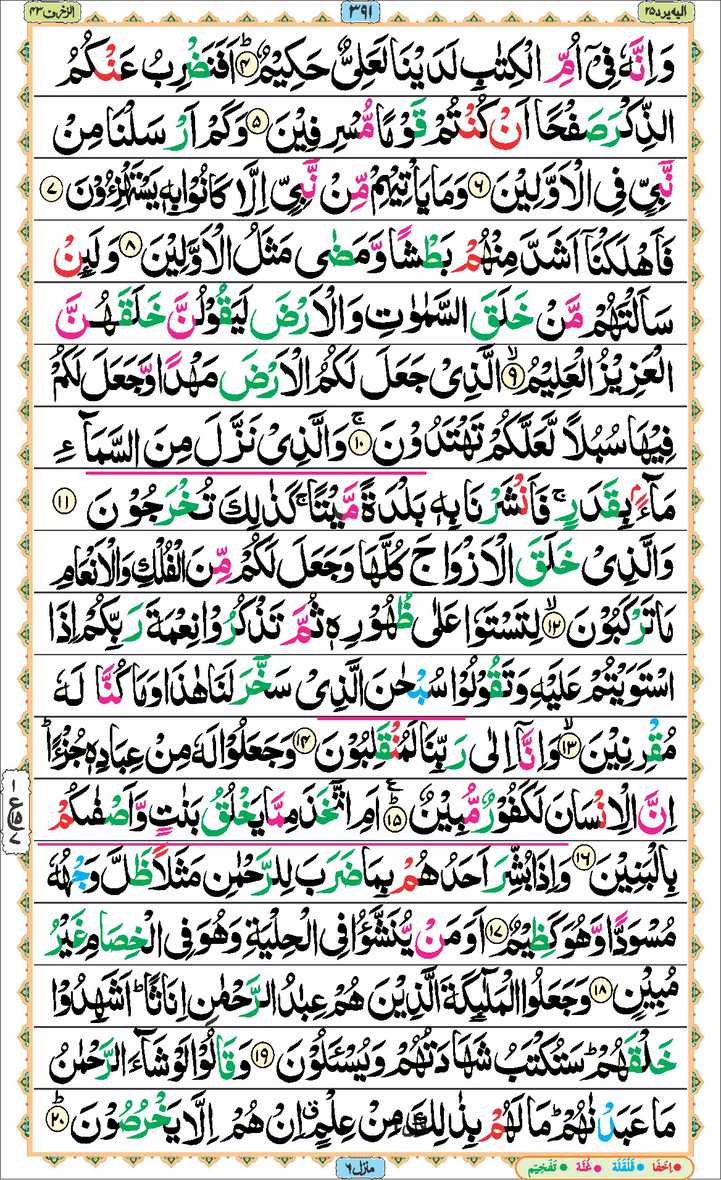 الیه یرد ۲۵
۳۹۱
الزخرف ۴۳
وَاِنَّهٗ فِیْۤ اُمِّ الْكِتٰبِ لَدَیْنَا لَعَلِیٌّ حَكِیْمٌؕ ۴ اَفَنَضْرِبُ عَنْكُمُ
الذِّكْرَ صَفْحًا اَنْ كُنْتُمْ قَوْمًا مُّسْرِفِیْنَ ۵ وَكَمْ اَرْسَلْنَا مِنْ
نَّبِیٍّ فِی الْاَوَّلِیْنَ ۶ وَمَا یَاْتِیْهِمْ مِّنْ نَّبِیٍّ اِلَّا كَانُوْا بِهٖ یَسْتَهْزِءُوْنَ ۷
فَاَهْلَكْنَاۤ اَشَدَّ مِنْهُمْ بَطْشًا وَّمَضٰی مَثَلُ الْاَوَّلِیْنَ ۸ وَلَىِٕنْ
سَاَلْتَهُمْ مَّنْ خَلَقَ السَّمٰوٰتِ وَالْاَرْضَ لَیَقُوْلُنَّ خَلَقَهُنَّ
الْعَزِیْزُ الْعَلِیْمُۙ ۹ الَّذِیْ جَعَلَ لَكُمُ الْاَرْضَ مَهْدًا وَّجَعَلَ لَكُمْ
فِیْهَا سُبُلًا لَّعَلَّكُمْ تَهْتَدُوْنَۚ ۱۰ وَالَّذِیْ نَزَّلَ مِنَ السَّمَآءِ
مَآءًۢ بِقَدَرٍۚ فَاَنْشَرْنَا بِهٖ بَلْدَةً مَّیْتًاۚ كَذٰلِكَ تُخْرَجُوْنَ ۱۱
وَالَّذِیْ خَلَقَ الْاَزْوَاجَ كُلَّهَا وَجَعَلَ لَكُمْ مِّنَ الْفُلْكِ وَالْاَنْعَامِ
مَا تَرْكَبُوْنَۙ ۱۲ لِتَسْتَوٗا عَلٰی ظُهُوْرِهٖ ثُمَّ تَذْكُرُوْا نِعْمَةَ رَبِّكُمْ اِذَا
اسْتَوَیْتُمْ عَلَیْهِ وَتَقُوْلُوْا سُبْحٰنَ الَّذِیْ سَخَّرَ لَنَا هٰذَا وَمَا كُنَّا لَهٗ
مُقْرِنِیْنَۙ ۱۳ وَاِنَّاۤ اِلٰی رَبِّنَا لَمُنْقَلِبُوْنَ ۱۴ وَجَعَلُوْا لَهٗ مِنْ عِبَادِهٖ جُزْءًاؕ
اِنَّ الْاِنْسَانَ لَكَفُوْرٌ مُّبِیْنٌؕ ۱۵ اَمِ اتَّخَذَ مِمَّا یَخْلُقُ بَنٰتٍ وَّاَصْفٰىكُمْ
بِالْبَنِیْنَ ۱۶ وَاِذَا بُشِّرَ اَحَدُهُمْ بِمَا ضَرَبَ لِلرَّحْمٰنِ مَثَلًا ظَلَّ وَجْهُهٗ
مُسْوَدًّا وَّهُوَ كَظِیْمٌ ۱۷ اَوَمَنْ یُّنَشَّؤُا فِی الْحِلْیَةِ وَهُوَ فِی الْخِصَامِ غَیْرُ
مُبِیْنٍ ۱۸ وَجَعَلُوا الْمَلٰٓىِٕكَةَ الَّذِیْنَ هُمْ عِبٰدُ الرَّحْمٰنِ اِنَاثًاؕ اَشَهِدُوْا
خَلْقَهُمْؕ سَتُكْتَبُ شَهَادَتُهُمْ وَیُسْـَٔلُوْنَ ۱۹ وَقَالُوْا لَوْ شَآءَ الرَّحْمٰنُ
مَا عَبَدْنٰهُمْؕ مَا لَهُمْ بِذٰلِكَ مِنْ عِلْمٍۗ اِنْ هُمْ اِلَّا یَخْرُصُوْنَؕ ۲۰
منزل ۶
اِخفَا • قَلقَلَة • غُنَّة • تَفخِیم •